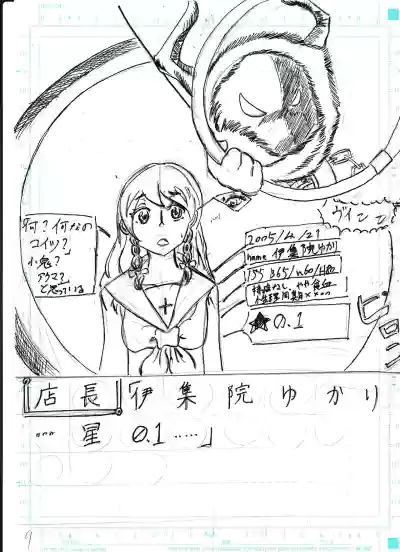 何?何なの
コイツ?
小鬼?
アクマ?
と思っている
ヴィーン
2005/4/21
name 伊集院ゆかり
155 B65/W60/H80
☆0.1
ピッ
店長「伊集院ゆかり
…星 0.1……」
9